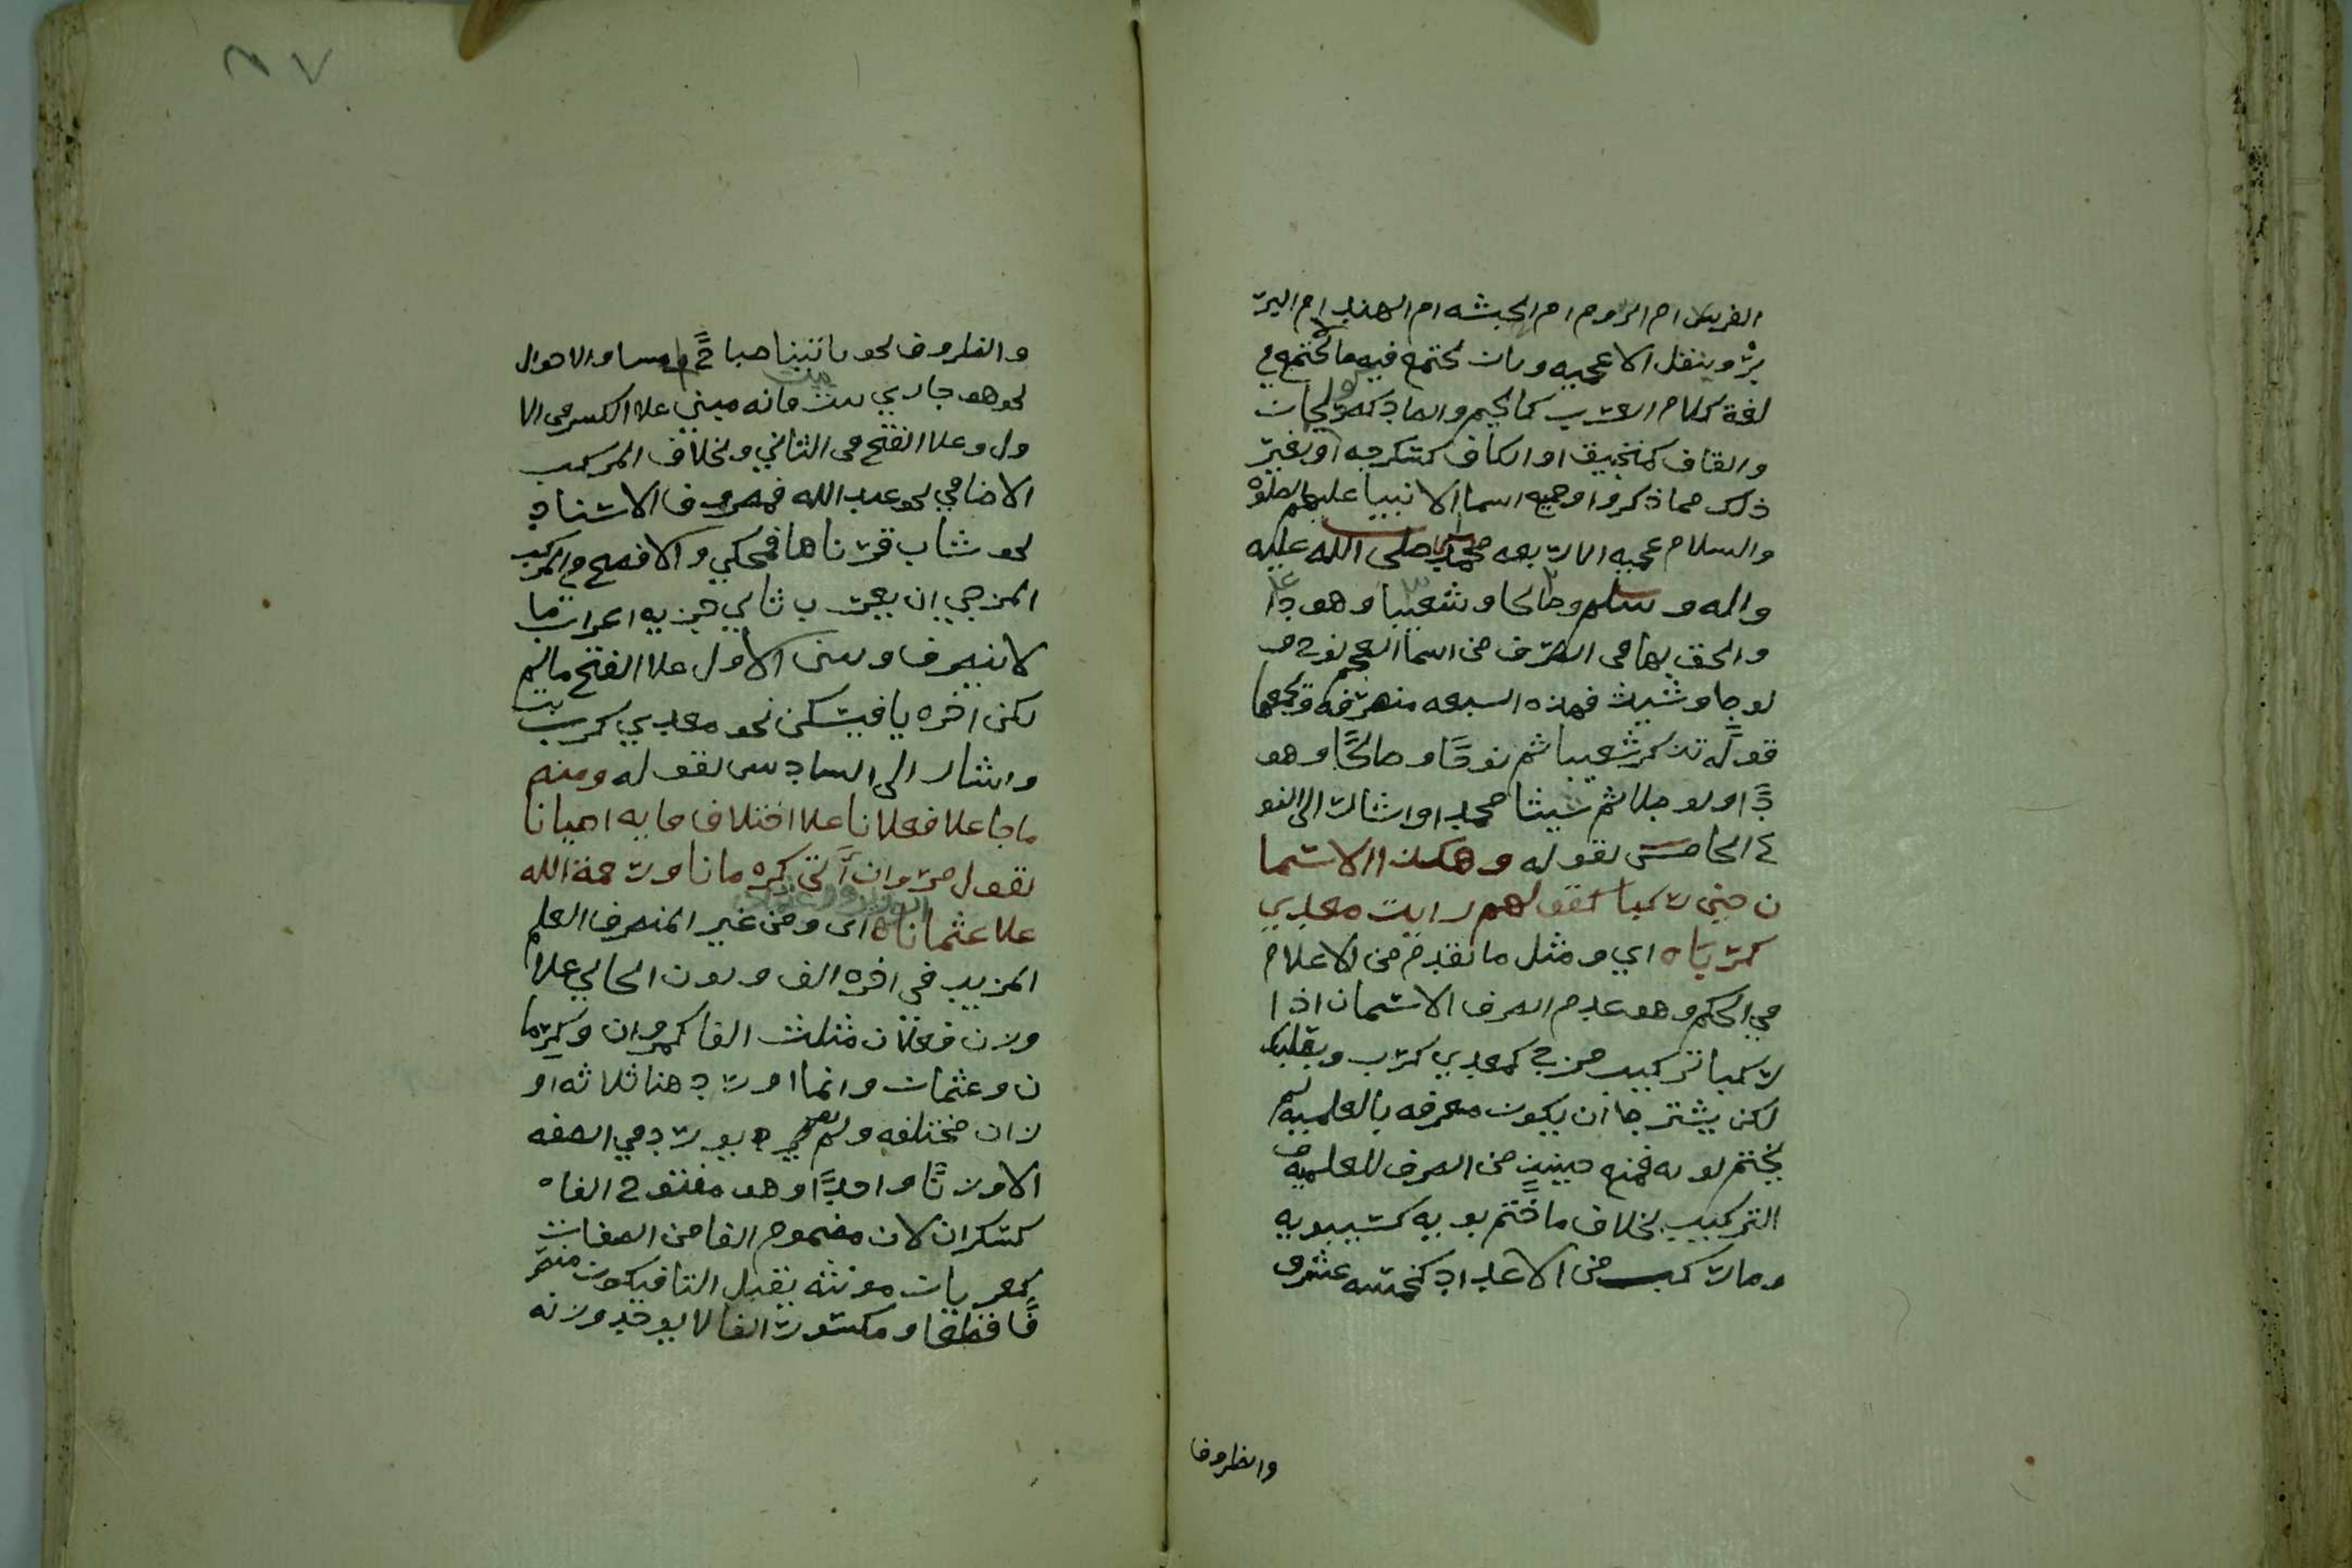 الفرس ام الروم ام الحبشه ام الهند ام البر
بر وبنقل الاعجميه وبان تجتمع فيه مالا تجتمع في
لغة كلام العرب كالجيم والصاد كصولجان
والقاف كمنجنيق او الكاف كسكرجه او بغير
ذلك مما ذكروا وجميع اسما الانبيا عليهم الصلوة
والسلام عجميه الا اربعه محمد صلى الله عليه
واله وسلم وصالحا وشعيبا وهودا
والحق بها في الصرف من اسما العجم نوح و
لوطا وشيث فهذه السبعه منصرفه ويجمعها
قوله تذكر شعيبا ثم نوحًا وصالحًا وهو
دًا ولوطا ثم شيثا محمدا واشار الى النو
ع الخامس بقوله وهكذا الاسما
ن حين ركبا كقولهم رايت معدي
كربا ه اي ومثل ما تقدم من الاعلام
في الحكم وهو عدم الصرف الاسمان اذا
ركبا تركيب مزج كمعدي كرب وبعلبك
لكن يشترط ان يكون معرفه بالعلميه لم
يختم بويه فمنع حينيذ من الصرف للعلميه و
التركيب بخلاف ما ختم بويه كسيبويه
وما ركب من الاعداد كخمسه عشر و
والظروف
والظروف نحو ياتينا صباح مساء والاحوال
نحو هو جاري بيت بيت فانه مبني علا الكسر في الا
ول وعلا الفتح في الثاني وبخلاف المركب
الاضافي نحو عبد الله فمصروف الاسناد
نحو شاب قرناها فمحكي والافصح في المركب
المزجي ان يعرب ثاني جزيه اعراب ما
لا ينصرف ويبنى الاول علا الفتح مالم
يكن اخره يا فيسكن نحو معدي كرب
واشار الى السادس بقوله ومنه
ماجا علا فعلانا علا اختلاف فا به احيانا
تقول مروان اتى كرمانا ورحمة الله
علا عثمانا ه اى ومن غير المنصرف العلم
المزيد في اخره الف ونون الجاي علا
وزن فعلان مثلث الفا كمروان وكرما
ن وعثمان وانما اورد هنا ثلاثه او
زان مختلفه ولم يورد في الصفه
الا وزنًا واحدًا وهو مفتوح الفاه
كسكران لان مضموم الفا من الصفات
كعريان مونثه يقبل التا فيكون منصر
فًا ومكسور الفا لا يوجد وزنه